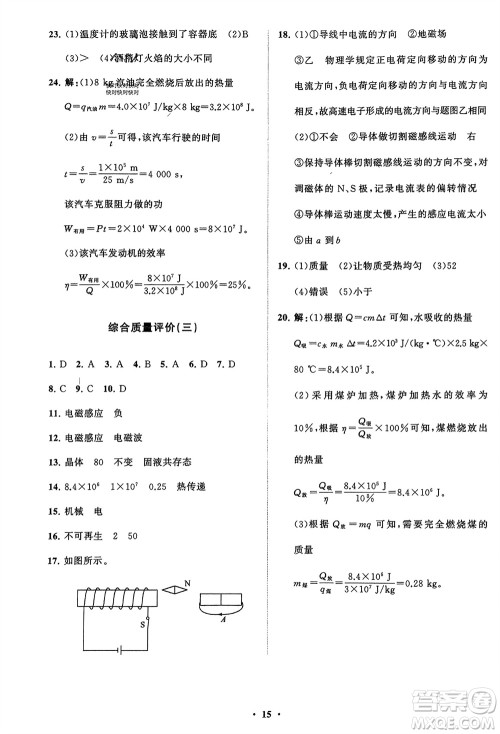 23. (1)温度计的玻璃泡接触到了容器底 (2)B
(3)> (4)酒精灯火焰的大小不同
24. 解:(1)8 kg 汽油完全燃烧后放出的热量
快对快对快对
Q=q汽油 m=4.0×10⁷ W×8 kg=3.2×10⁸ J
(2)由 v=s/t 可得,该汽车行驶的时间
t=s/v=1×10⁵ m/25 m/s=4 000 s
该汽车克服阻力做的功
W有用=Pt=2×10⁴ W×4 000 s=8×10⁷ J
(3)该汽车发动机的效率
η=W有用/Q×100%=8×10⁷ J/3.2×10⁸ J×100%=25%
综合质量评价(三)
1. D 2. A 3. D 4. D 5. A 6. D 7. D
8. C 9. C 10. A
11. 电磁感应 负
12. 电磁感应 电磁波
13. 晶体 80 不变 固液共存态
14. 8.4×10⁶ 1×10³ 0.25 热传递
15. 机械 电
16. 不可再生 2 50
17. 如图所示。
N
S
18. (1)①电流的方向 ②地磁场
③乙 物理学把正电荷定向移动的方向规定为
电流方向,负电荷定向移动的方向与电流方向
相反,故高速电子形成的电流方向与题图乙相同
(2)①不会 ②导体做切割磁感线运动 右
③保持导体棒切割磁感线运动的方向不变,对
调磁体的N、S极,记录电流表的偏转情况
④导体棒运动速度太慢,产生的感应电流太小
⑤由 a 到 b
19. (1)质量 (2)让物质受热均匀 (3)52
(4)错误 (5)小于
20. 解:(1)根据 Q=cmΔt 可知,水吸收的热量
Q吸=c水 m水 Δt=4.2×10³ J/(kg·℃)×2.5 kg×
80 ℃=8.4×10⁵ J
(2)采用煤炉加热,煤炉加热水的效率为
10%,根据 η=Q吸/Q放×100%可知,煤燃烧放出
的热量
Q放=Q吸/η=8.4×10⁵ J/10%=8.4×10⁶ J
(3)根据 Q放=mq 可知,需要完全燃烧煤的
质量
m煤=Q放/q煤=8.4×10⁶ J/3×10⁷ J/kg=0.28 kg
15
答案圈
MXQE.COM